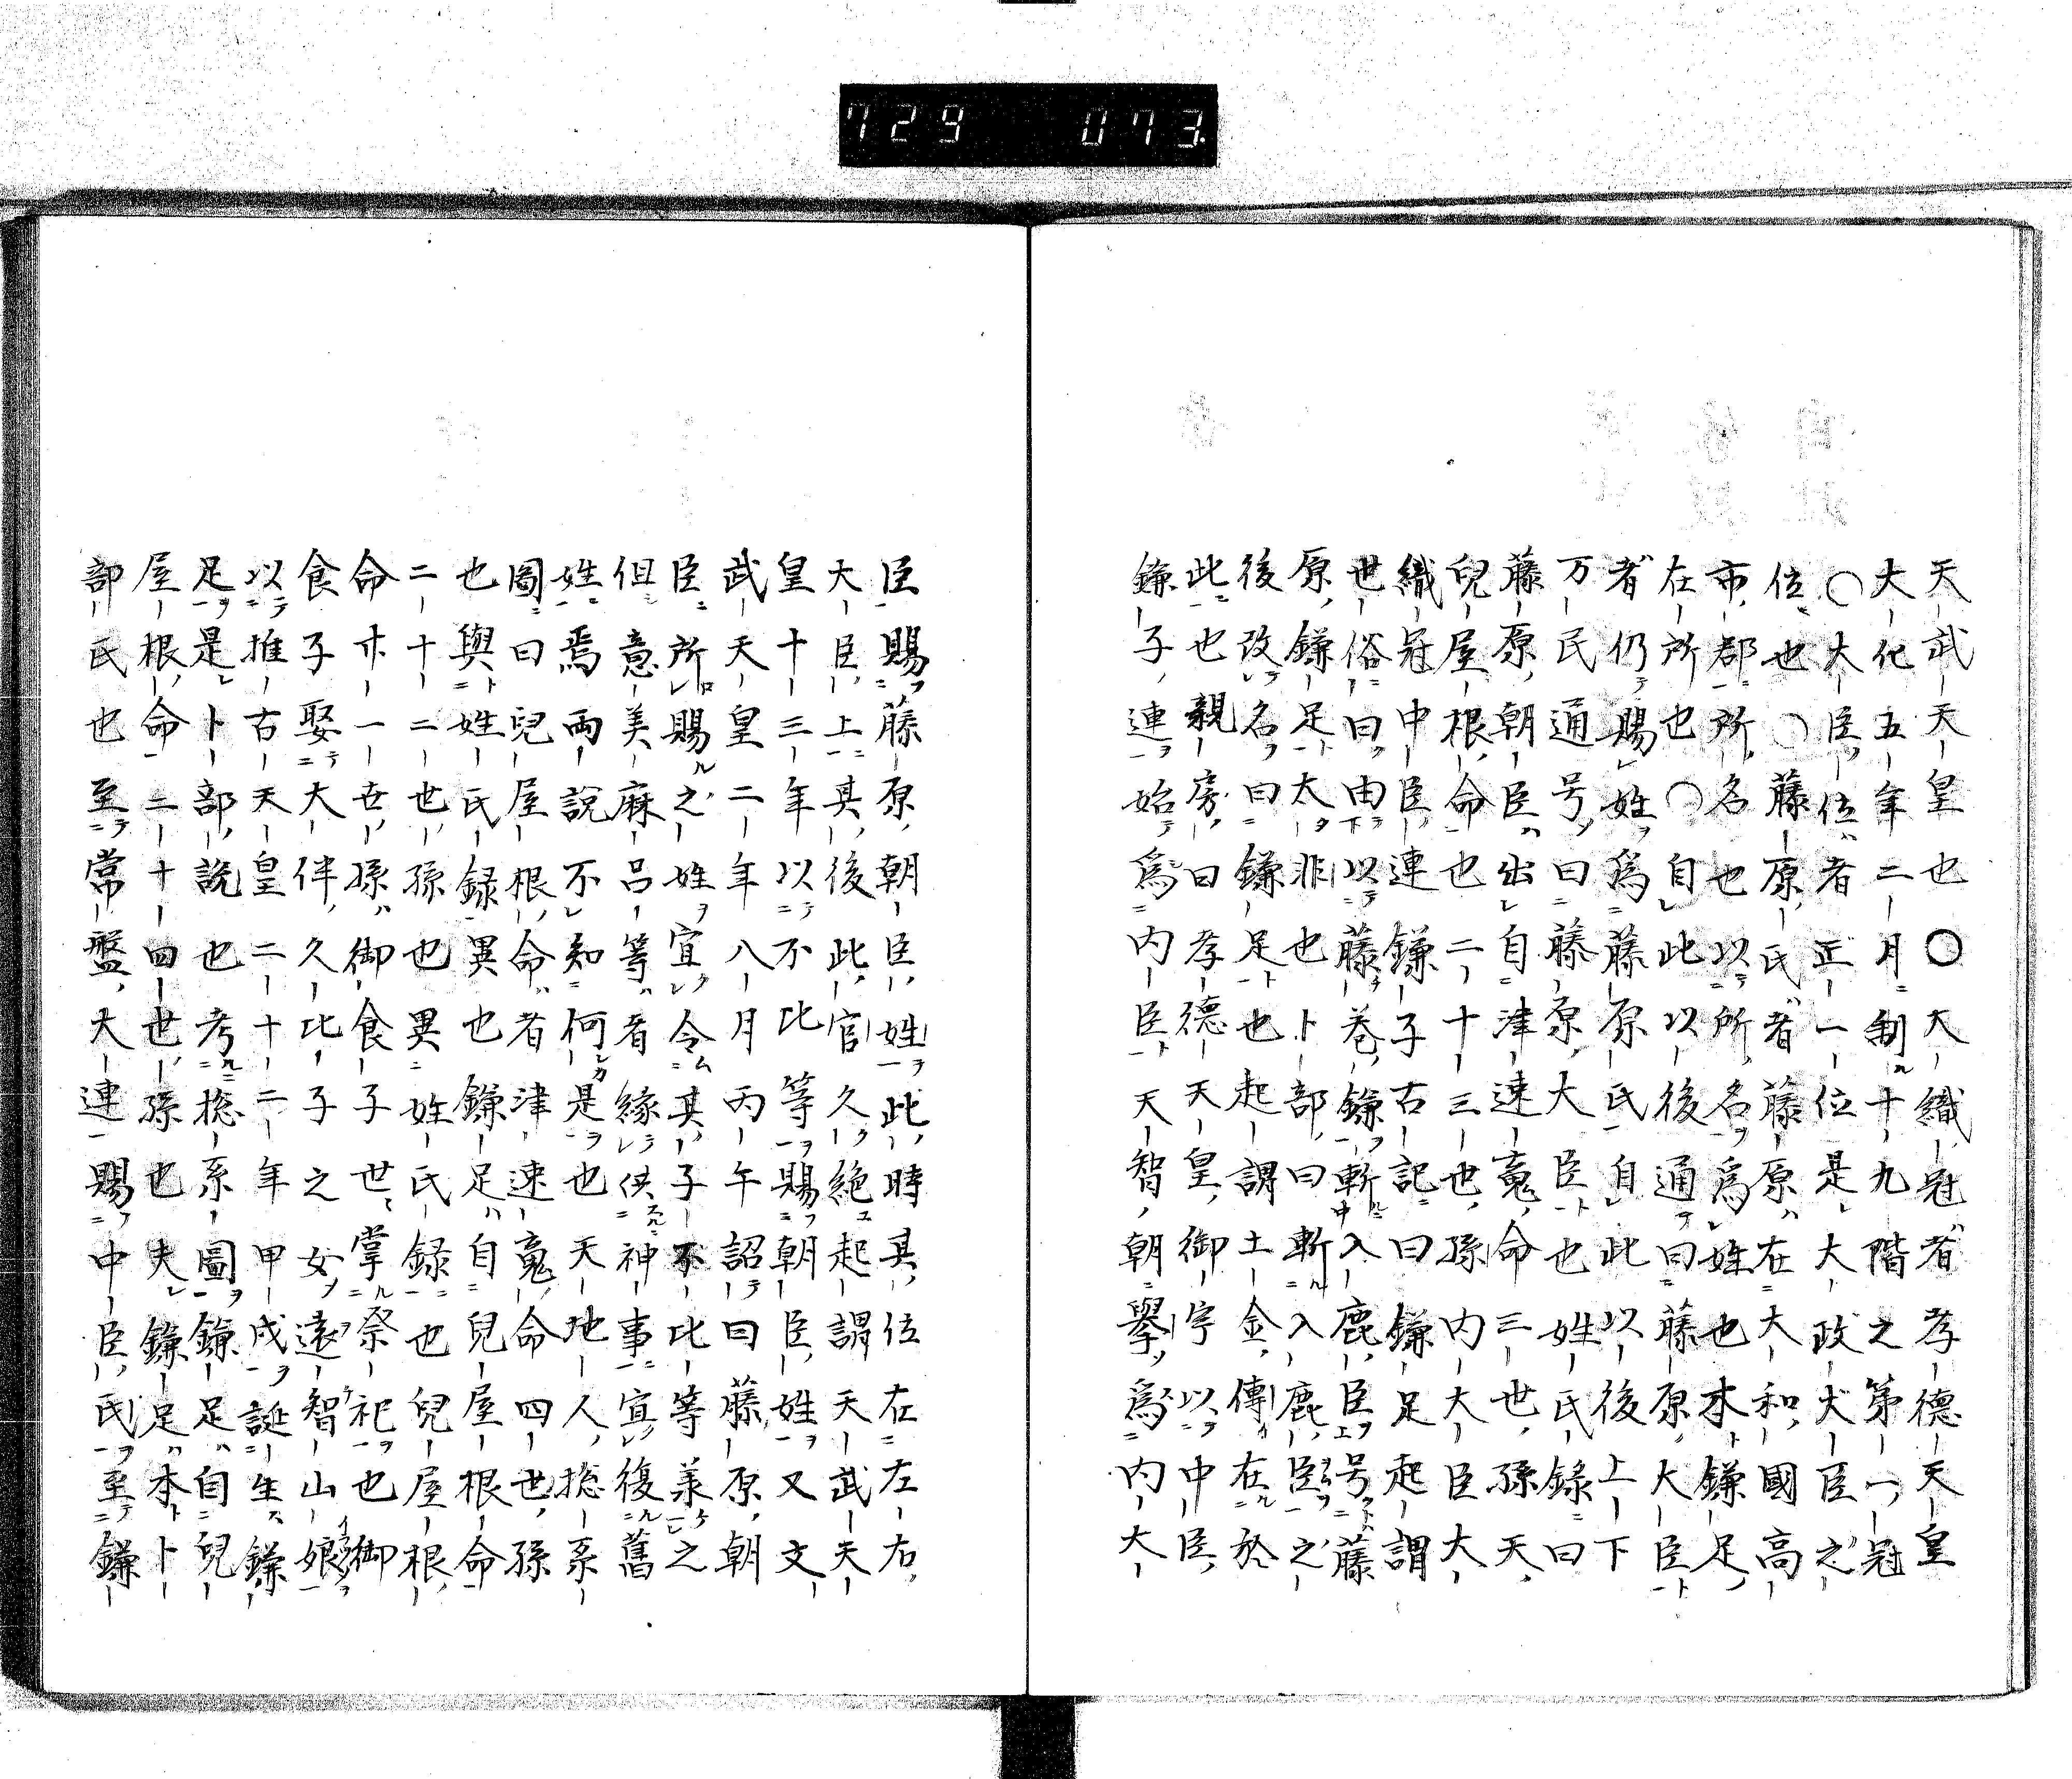 729 073
天武天皇也〇大織冠者孝德天皇
大化五年二月制十九階之第一冠
〇大臣位者正一位是大政大臣之
位也〇藤原氏者藤原在大和國高
市郡所名也以所名爲姓也本鎌足
在所也〇自此以後通曰藤原大臣
者仍賜姓爲藤原氏自此以後上下
万民通号曰藤原大臣也姓氏錄曰
藤原朝臣出自津速䰠命三世孫天
兒屋根命也二十三世孫内大臣大
織冠中臣連鎌子古記曰鎌足起謂
世俗曰由以藤巻鎌斬入鹿臣号藤
原鎌足太非也卜部曰斬入鹿臣之
後改名曰鎌足也起謂土金傳在於
此也親房曰孝德天皇御宇以中臣
鎌子連始爲内臣天智朝擧爲内大
臣賜藤原朝臣姓此時其位在左右
大臣上其後此官久絶起謂天武天
皇十三年以不比等賜朝臣姓又文
武天皇二年八月丙午詔曰藤原朝
臣所賜之姓宜令其子不比等羕之
但意美麻呂等者緣供神事宜復舊
姓焉兩說不知何是也天地人揔系
圖曰兒屋根命者津速䰠命四世孫
也與姓氏録異也鎌足自兒屋根命
二十二世孫也異姓氏録也兒屋根
命廿一世孫御食子世掌祭祀也御
食子娶大伴久比子之女遠智山娘
以推古天皇二十二年甲戌誕生鎌
足是卜部說也考揔系圖鎌足自兒
屋根命二十四世孫也夫鎌足本卜
部氏也至常盤大連賜中臣氏至鎌